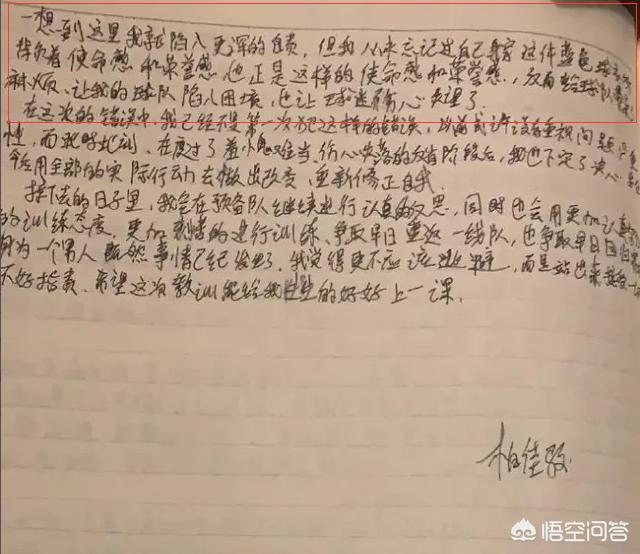 一想到这里我就陷入更深的自责,但我从未忘记过自己身穿这件蓝色球衣
背负着使命感和荣誉感,也正是这样的使命感和荣誉感,反而给球队惹来
麻烦、让我的球队陷入困境,也让球迷有心失望了。
在这次的错误中,我已经不是第一次犯这样的错误,以前或许没有重视问题严重
性,而此时此刻、在度过了羞愧难当、伤心失落的反省阶段后,我也下定了决心
去用全部的实际行动去做出改变、重新修正自我。
接下去的日子里,我会在预备队继续进行认真的反思,同时也会用更加认真
的训练态度、更加刻苦的进行训练、争取早日重返一线队,也争取早日回归
因为一个男人既然事情已经发生了、我觉得更不应该逃避,而是站出来接受一切
不好指责、希望这次教训能给我的好好上一课。
柏佳骏
悟空问答